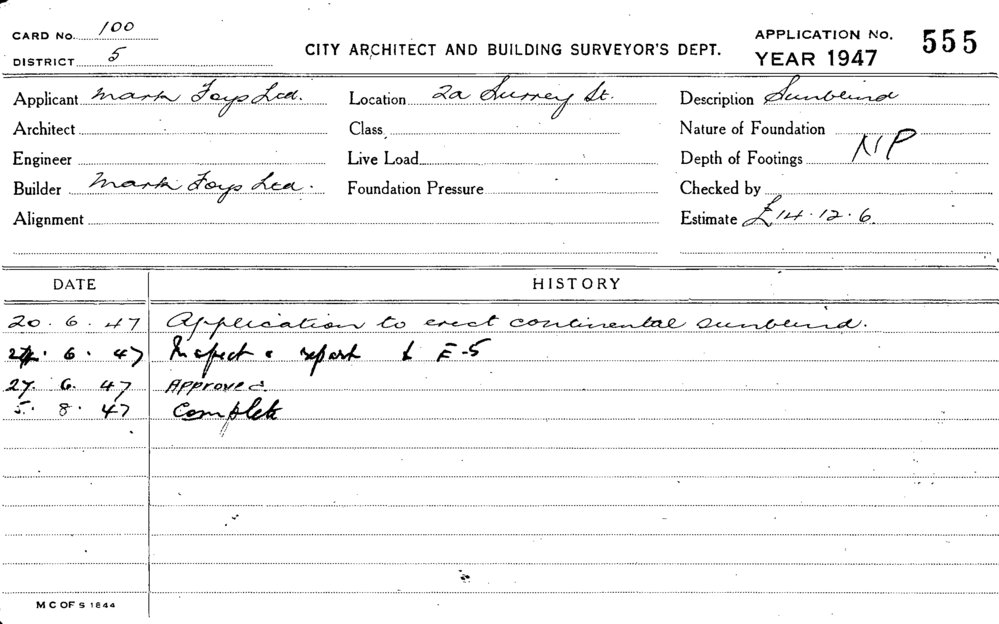 CARD No. 100
DISTRICT 5
CITY ARCHITECT AND BUILDING SURVEYOR'S DEPT.
APPLICATION No. 555
YEAR 1947
Applicant Mark Foys Ltd. Location 2a Surrey St. Description Sunblind
Architect Class Nature of Foundation
Engineer Live Load Depth of Footings N P
Builder Mark Foys Ltd. Foundation Pressure Checked by
Alignment Estimate £14.12.6.
DATE HISTORY
20.6.47 Application to erect continental sunblind.
6.47 Inspect & report E-5
27.6.47 Approved.
5.8.47 Complete
M C OF S 1844